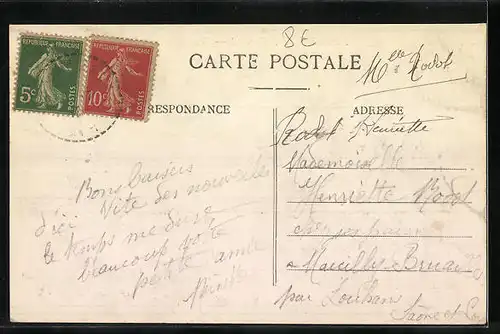 8E
REPUBLIQUE FRANÇAISE
5c POSTES
REPUBLIQUE FRANÇAISE
10c POSTES
CARTE POSTALE
Mlle Rodot
RESPONDANCE
ADRESSE
Rodot Henriette
Mademoiselle
Henriette Rodot
à
par Louhans
Saône et Lo
Bons baisers
d'ici Vite des nouvelles
le temps me dure
beaucoup
petite amie